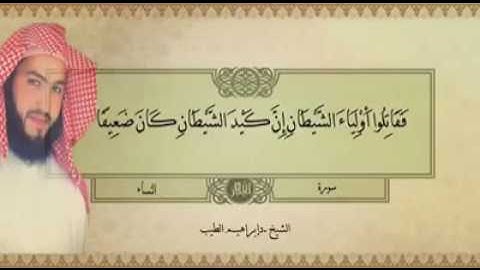 فَقَاتِلُوا أَوْلِيَاءَ الشَّيْطَانِ إِنَّ كَيْدَ الشَّيْطَانِ كَانَ ضَعِيفًا
سورة النساء
الشيخ .د.إبراهيم الطيب